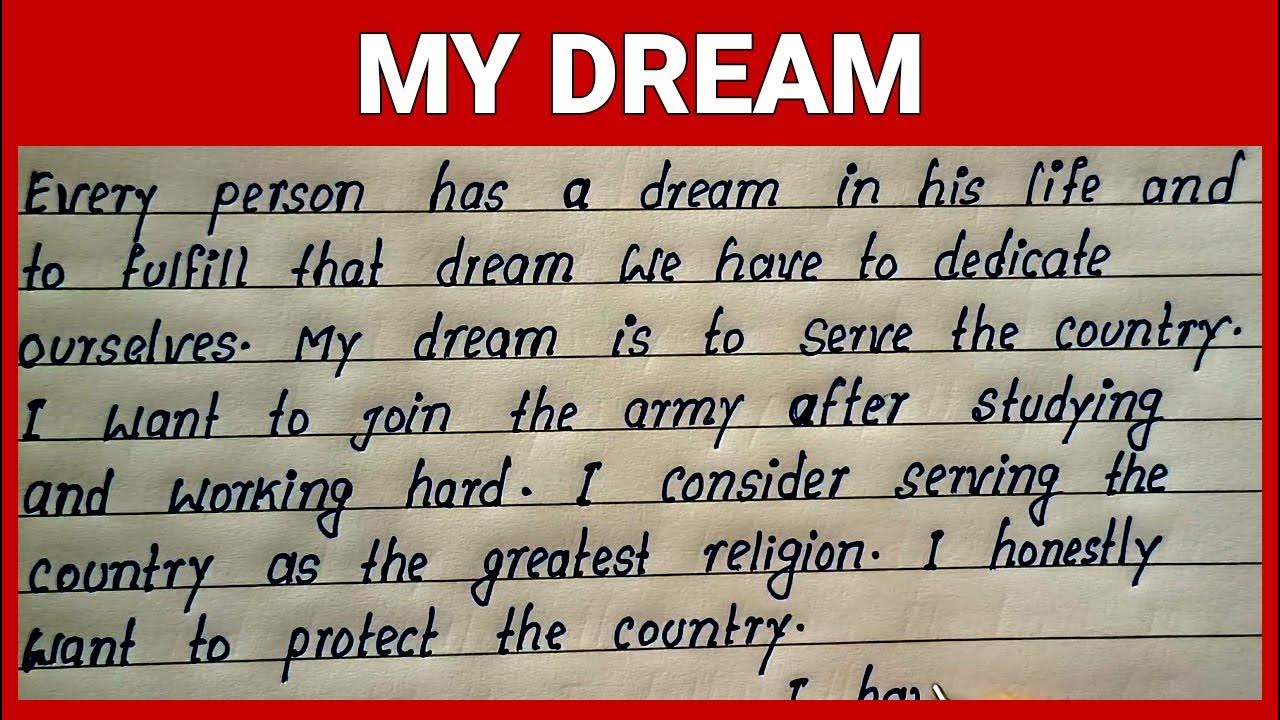 MY DREAM
Every person has a dream in his life and
to fulfill that dream we have to dedicate
ourselves. My dream is to serve the country.
I want to join the army after studying
and working hard. I consider serving the
country as the greatest religion. I honestly
want to protect the country.
I